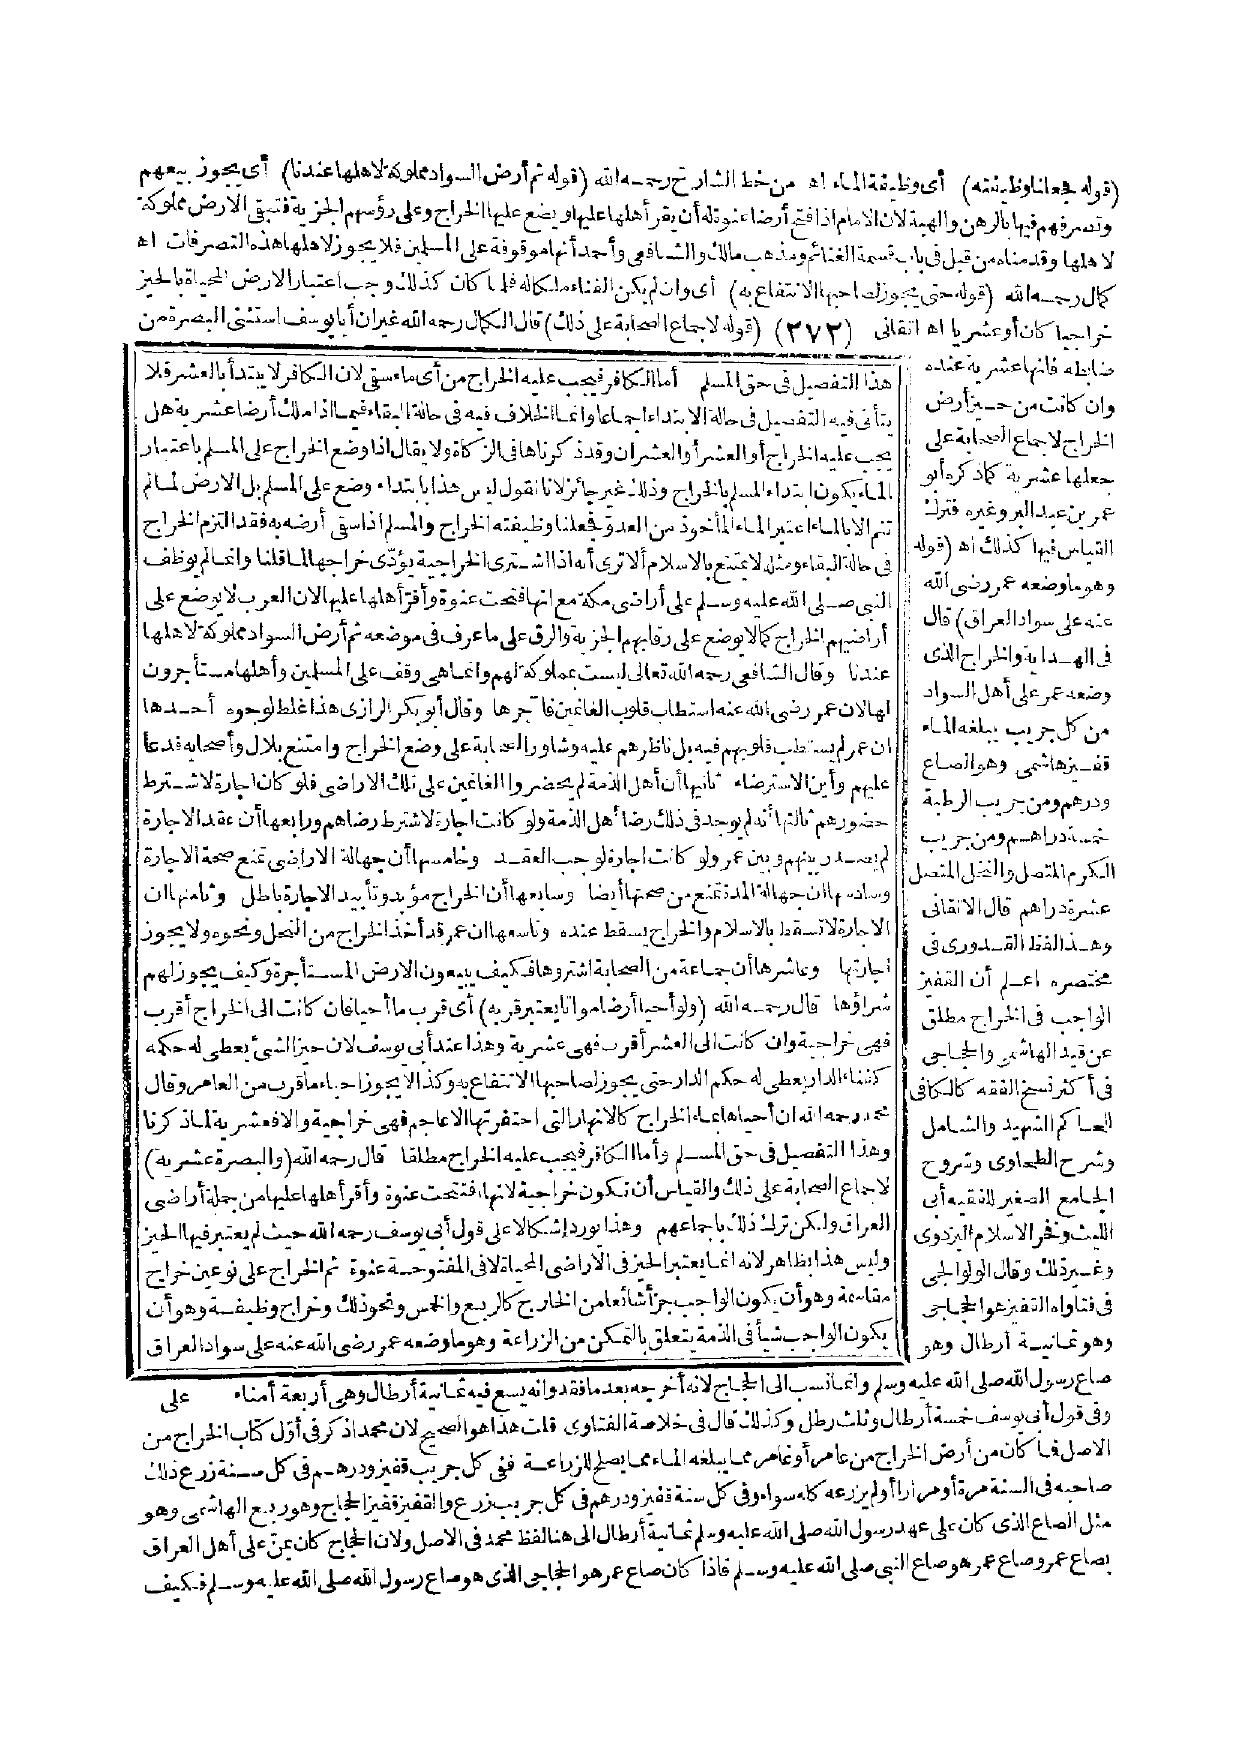 (قوله فجعلنا وظيفته) أى وظيفة الماء اه من خط الشارح رحمه الله (قوله ثم أرض السواد مملوكة لاهلها عندنا) أى يجوز بيعهم
وتصرفهم فيها بالرهن والهبة لان الامام اذا فتح أرضا عنوة له أن يقر أهلها عليها ويضع عليها الخراج وعلى رؤسهم الجزية فتبقى الارض مملوكة
لاهلها وقدمناه من قبل فى باب قسمة الغنائم ومذهب مالك والشافعى وأحد أنها موقوفة على المسلمين فلا يجوز لاهلها هذه التصرفات اه
كمال رحمه الله (قوله حتى يجوز لصاحبها الانتفاع به) أى وان لم يكن الفناء ملكا له فلما كان كذلك وجب اعتبار الارض المحياة بالحيز
خراجيا كان أو عشريا اه اتقانى (٢٧٢) (قوله لاجماع الصحابة على ذلك) قال الكمال رحمه الله غير ان أبا يوسف استثنى البصرة من
ضابطه فانها عشرية عنده
وان كانت من حيز أرض
الخراج لاجماع الصحابة على
جعلها عشرية كما ذكره أبو
عمر بن عبد البر وغيره فترك
القياس فيها كذلك اه (قوله
وهو ما وضعه عمر رضى الله
عنه على سواد العراق) قال
فى الهداية والخراج الذى
وضعه عمر على أهل السواد
من كل جريب يبلغه الماء
قفيز هاشمى وهو الصاع
ودرهم ومن جريب الرطبة
خمسة دراهم ومن جريب
الكرم المتصل والنخل المتصل
عشرة دراهم قال الاتقانى
وهذا لفظ القدورى فى
مختصره اعلم أن القفيز
الواجب فى الخراج مطلق
عن قيد الهاشمى والحجاجى
فى أكثر نسخ الفقه كالكافى
للحاكم الشهيد والشامل
وشرح الطحاوى وشروح
الجامع الصغير للفقيه أبى
الليث وفخر الاسلام البزدوى
وغير ذلك وقال الولوالجى
فى فتاواه القفيز هو الحجاجى
وهو ثمانية أرطال وهو
هذا التفصيل فى حق المسلم أما الكافر فيجب عليه الخراج من أى ماء سقى لان الكافر لا يبتدأ بالعشر فلا
يتأتى فيه التفصيل فى حالة الابتداء اجماعا وانما الخلاف فيه فى حالة البقاء فيما اذا ملك أرضا عشرية هل
يجب عليه الخراج أو العشر أو العشران وقد ذكرناها فى الزكاة ولا يقال اذا وضع الخراج على المسلم باعتبار
الماء يكون ابتداء المسلم بالخراج وذلك غير جائز لانا نقول ليس هذا بابتداء وضع على المسلم بل الارض لما لم
تنم الا بالماء اعتبر الماء المأخوذ من العدو فجعلنا وظيفته الخراج والمسلم اذا سقى أرضه به فقد التزم الخراج
فى حالة البقاء ومثله لا يمتنع بالاسلام ألا ترى أنه اذا اشترى الخراجية يؤدى خراجها لما قلنا وانما لم يوظف
النبى صلى الله عليه وسلم على أراضى مكة مع انها فتحت عنوة وأقر أهلها عليها لان العرب لا يوضع على
أراضيهم الخراج كما لا يوضع على رقابهم الجزية والرق على ما عرف فى موضعه ثم أرض السواد مملوكة لاهلها
عندنا وقال الشافعى رحمه الله تعالى ليست بمملوكة لهم وانما هى وقف على المسلمين وأهلها مستأجرون
لها لان عمر رضى الله عنه استطاب قلوب الغانمين فآجرها وقال أبو بكر الرازى هذا غلط لوجوه أحدها
ان عمر لم يستطب قلوبهم فيه بل ناظرهم عليه وشاور الصحابة على وضع الخراج وامتنع بلال وأصحابه فدعا
عليهم وأين الاسترضاء ثانيها أن أهل الذمة لم يحضروا الغانمين على تلك الاراضى فلو كان اجارة لاشترط
حضورهم ثالثها أنه لم يوجد فى ذلك رضا أهل الذمة ولو كانت اجارة لاشترط رضاهم ورابعها أن عقد الاجارة
لم يصدر بينهم وبين عمر ولو كانت اجارة لوجب العقد وخامسها أن جهالة الاراضى تمنع صحة الاجارة
وسادسها ان جهالة المدة تمنع من صحتها أيضا وسابعها أن الخراج مؤبد وتأبيد الاجارة باطل وثامنها ان
الاجارة لا تسقط بالاسلام والخراج يسقط عنده وتاسعها ان عمر قد أخذ الخراج من النخل ونحوه ولا يجوز
اجارتها وعاشرها أن جماعة من الصحابة اشتروها فكيف يبيعون الارض المستأجرة وكيف يجوز لهم
شراؤها قال رحمه الله (ولو أحيا أرضا مواتا يعتبر قربه) أى قرب ما أحيا فان كانت الى الخراج أقرب
فهى خراجية وان كانت الى العشر أقرب فهى عشرية وهذا عند أبى يوسف لان حيز الشئ يعطى له حكمه
كفناء الدار يعطى له حكم الدار حتى يجوز لصاحبها الانتفاع به وكذا لا يجوز احياء ما قرب من العامر وقال
محمد رحمه الله ان أحياها بماء الخراج كالانهار التى احتفرتها الاعاجم فهى خراجية والا فعشرية لما ذكرنا
وهذا التفصيل فى حق المسلم وأما الكافر فيجب عليه الخراج مطلقا قال رحمه الله (والبصرة عشرية)
لاجماع الصحابة على ذلك والقياس أن تكون خراجية لانها فتحت عنوة وأقر أهلها عليها من جملة أراضى
العراق ولكن ترك ذلك باجماعهم وهذا يورد اشكالا على قول أبى يوسف رحمه الله حيث لم يعتبر فيها الحيز
وليس هذا بظاهر لانه انما يعتبر الحيز فى الاراضى المحياة لا فى المفتوحة عنوة ثم الخراج على نوعين خراج
مقاسمة وهو أن يكون الواجب جزأ شائعا من الخارج كالربع والخمس ونحو ذلك وخراج وظيفة وهو أن
يكون الواجب شيأ فى الذمة يتعلق بالتمكن من الزراعة وهو ما وضعه عمر رضى الله عنه على سواد العراق
صاع رسول الله صلى الله عليه وسلم وانما نسب الى الحجاج لانه أخرجه بعد ما فقد وانه يسع فيه ثمانية أرطال وهى أربعة أمناء على
وفى قول أبى يوسف خمسة أرطال وثلث رطل وكذلك قال فى خلاصة الفتاوى قلت هذا هو الصحيح لان محمدا ذكر فى أول كتاب الخراج من
الاصل فما كان من أرض الخراج من عامر أو غامر مما يبلغه الماء مما يصلح للزراعة ففى كل جريب قفيز ودرهم فى كل سنة زرع ذلك
صاحبه فى السنة مرة أو مرارا أو لم يزرعه كله سواء وفى كل سنة قفيز ودرهم فى كل جريب زرع والقفيز قفيز الحجاج وهو ربع الهاشمى وهو
مثل الصاع الذى كان على عهد رسول الله صلى الله عليه وسلم ثمانية أرطال الى هنا لفظ محمد فى الاصل ولان الحجاج كان يمن على أهل العراق
بصاع عمر وصاع عمر هو صاع النبى صلى الله عليه وسلم فاذا كان صاع عمر هو الحجاجى الذى هو صاع رسول الله صلى الله عليه وسلم فكيف